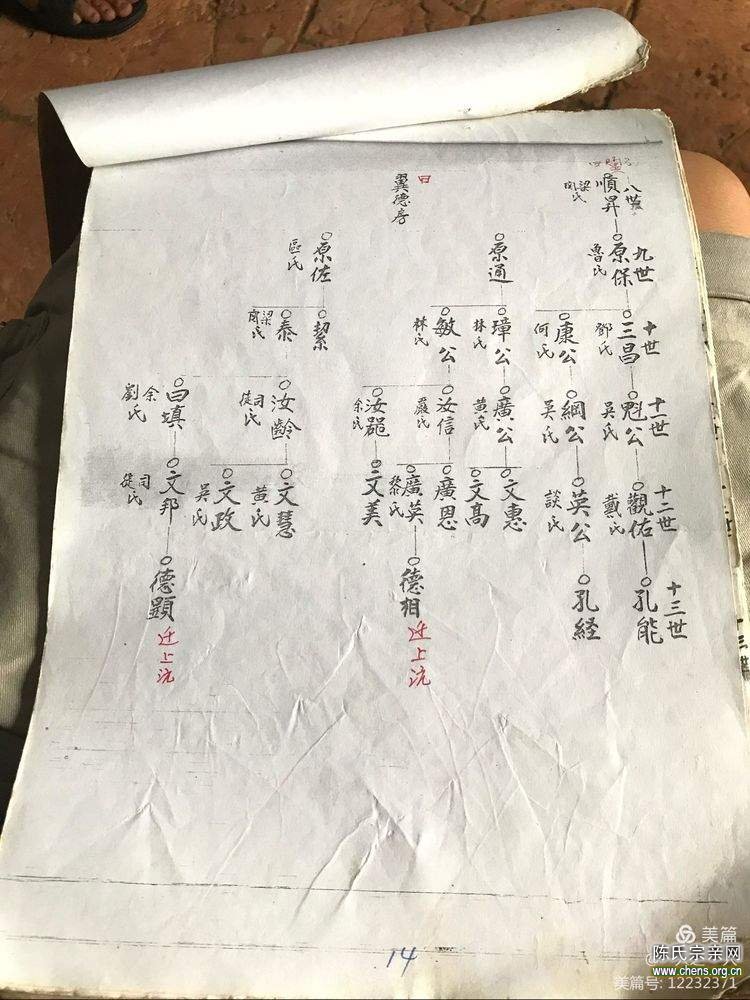 八世
順昇
梁氏
九世
原保
魯氏
原通
原佐
區氏
翼德房
曰
十世
三昌
鄧氏
康公
何氏
璋公
林氏
敏公
林氏
絜
泰
梁氏
十一世
魁公
吳氏
綱公
吳氏
廣公
黃氏
汝信
嚴氏
汝
余氏
汝齡
司徒氏
曰填
余氏
劉氏
十二世
觀佑
戴氏
英公
談氏
文惠
文高
廣恩
廣英
黎氏
文美
文慧
黃氏
文政
吳氏
文邦
司徒氏
十三世
孔能
孔経
德相
迁上沆
德顕
迁上沆
十三世
14
美篇
陈氏宗亲网
www.chens.org.cn
美篇号: 12232371